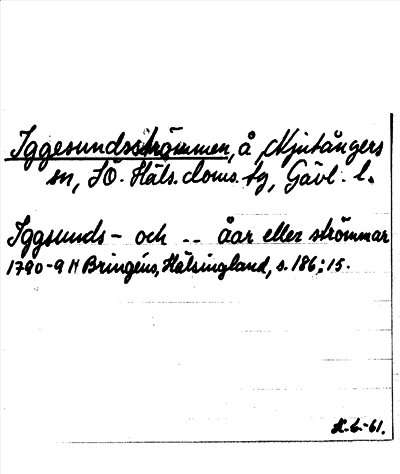 Iggesundsströmmen, å, Njutångers
sn, SÖ. Häls. doms. tg, Gävl. l.
Iggsunds- och -- åar eller strömmar
1790-9 H Bringéus, Hälsingland, s. 186; 15.
-61.